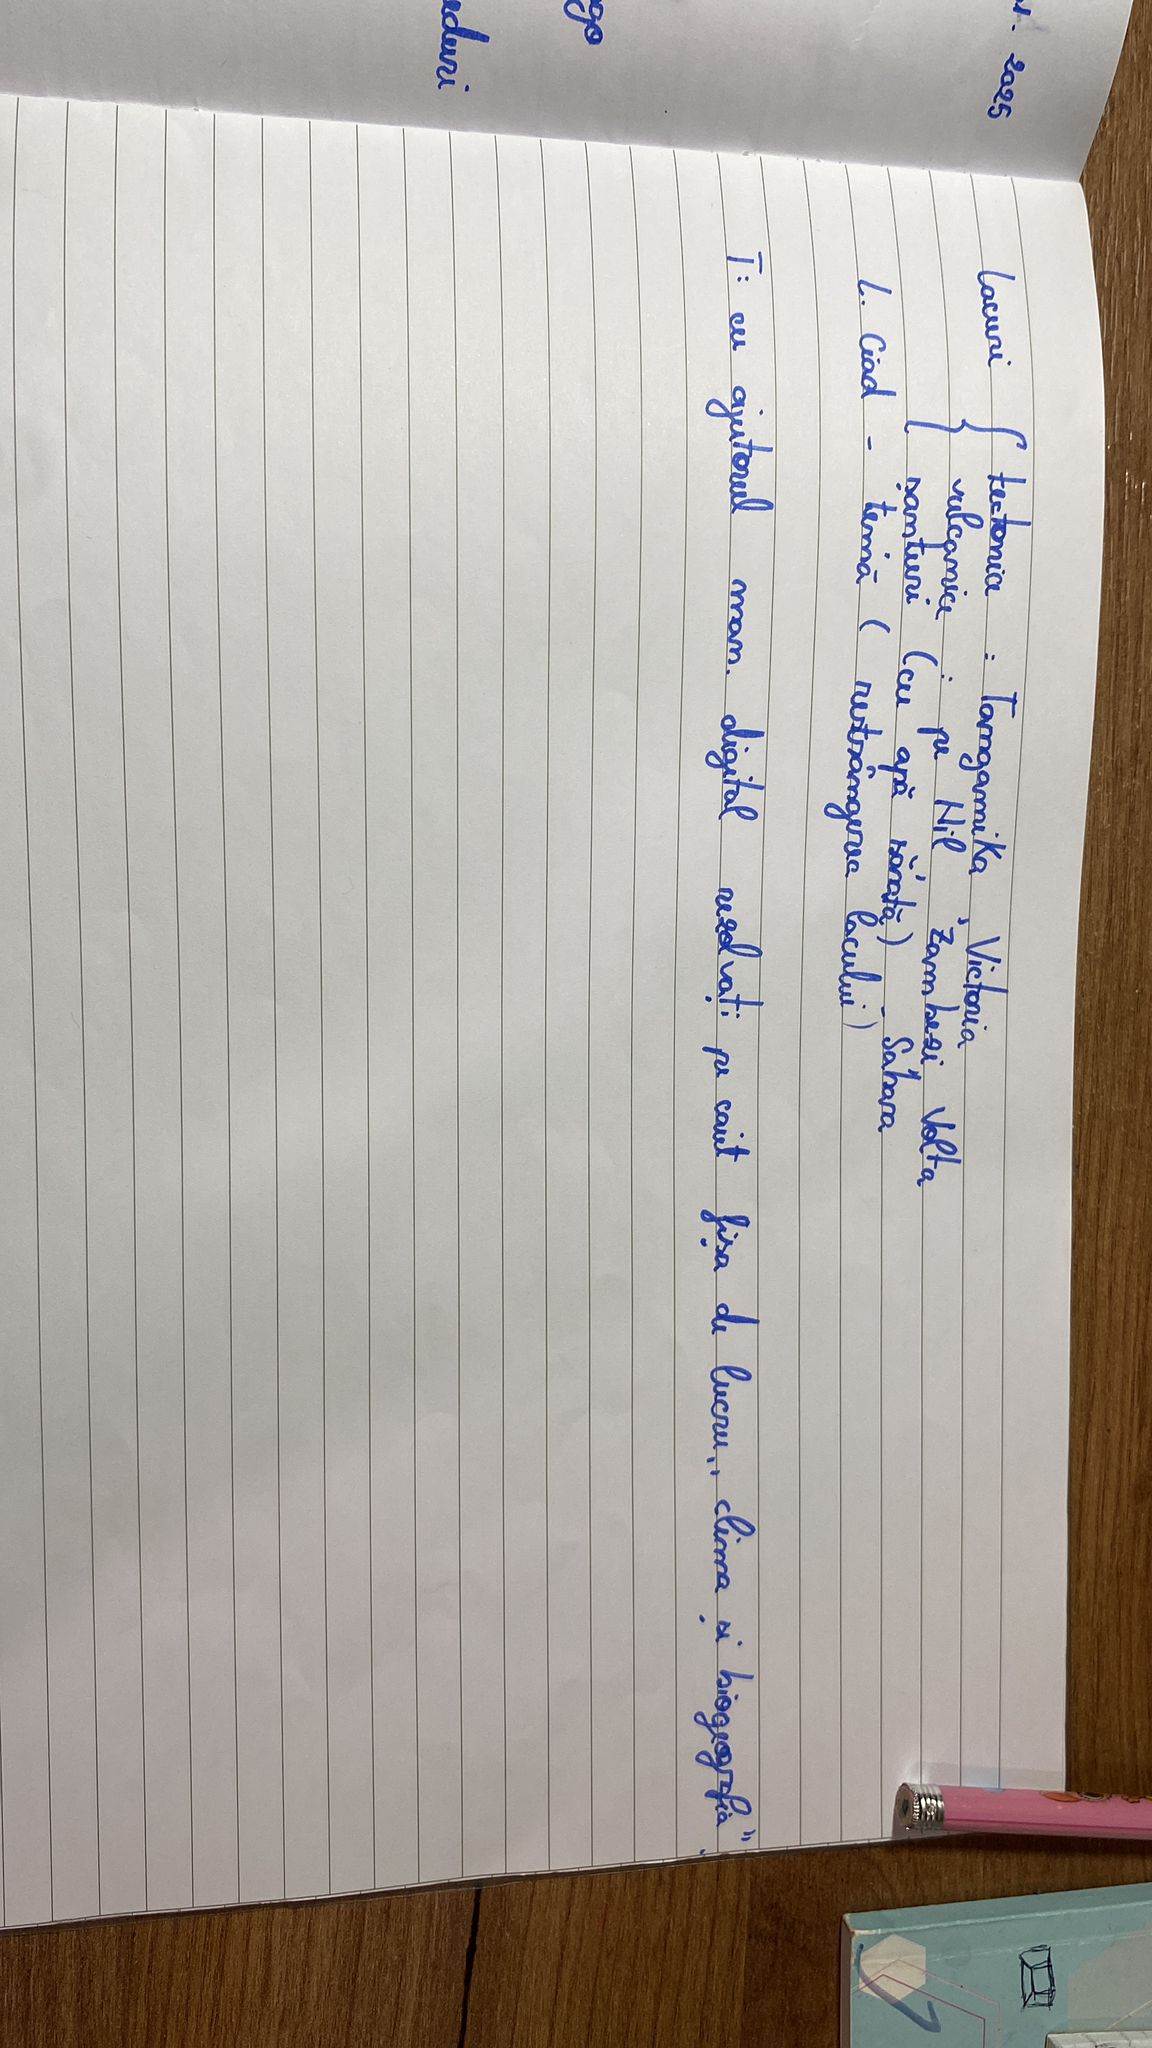 2025
go
duri
Lacuri { tectonice : Tanganika, Victoria
vulcanice : pe Nil, Zambezi, Volta
șanturi (cu apă sărată) - Sahara
L. Ciad - temă ( restrângerea lacului)
T: cu ajutorul man. digital rezolvați pe caiet fișa de lucru,, clima și biogeografia".